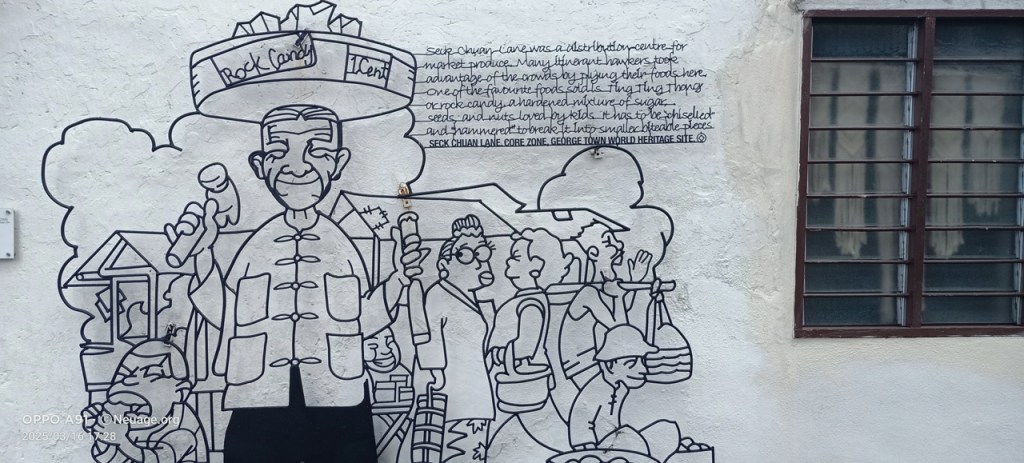 Rock Candy
1 Cent
Seck Chuan Lane was a distribution centre for
market produce. Many itinerant hawkers took
advantage of the crowds by plying their foods here.
One of the favourite foods sold is Ting Ting Thong
or rock candy, a hardened mixture of sugar,
seeds, and nuts loved by kids. It has to be "chiselled
and "hammered" to break it into smaller biteable pieces.
SECK CHUAN LANE. CORE ZONE, GEORGE TOWN WORLD HERITAGE SITE.
OPPO A9 © Neuage.org
2025/03/16 17:28